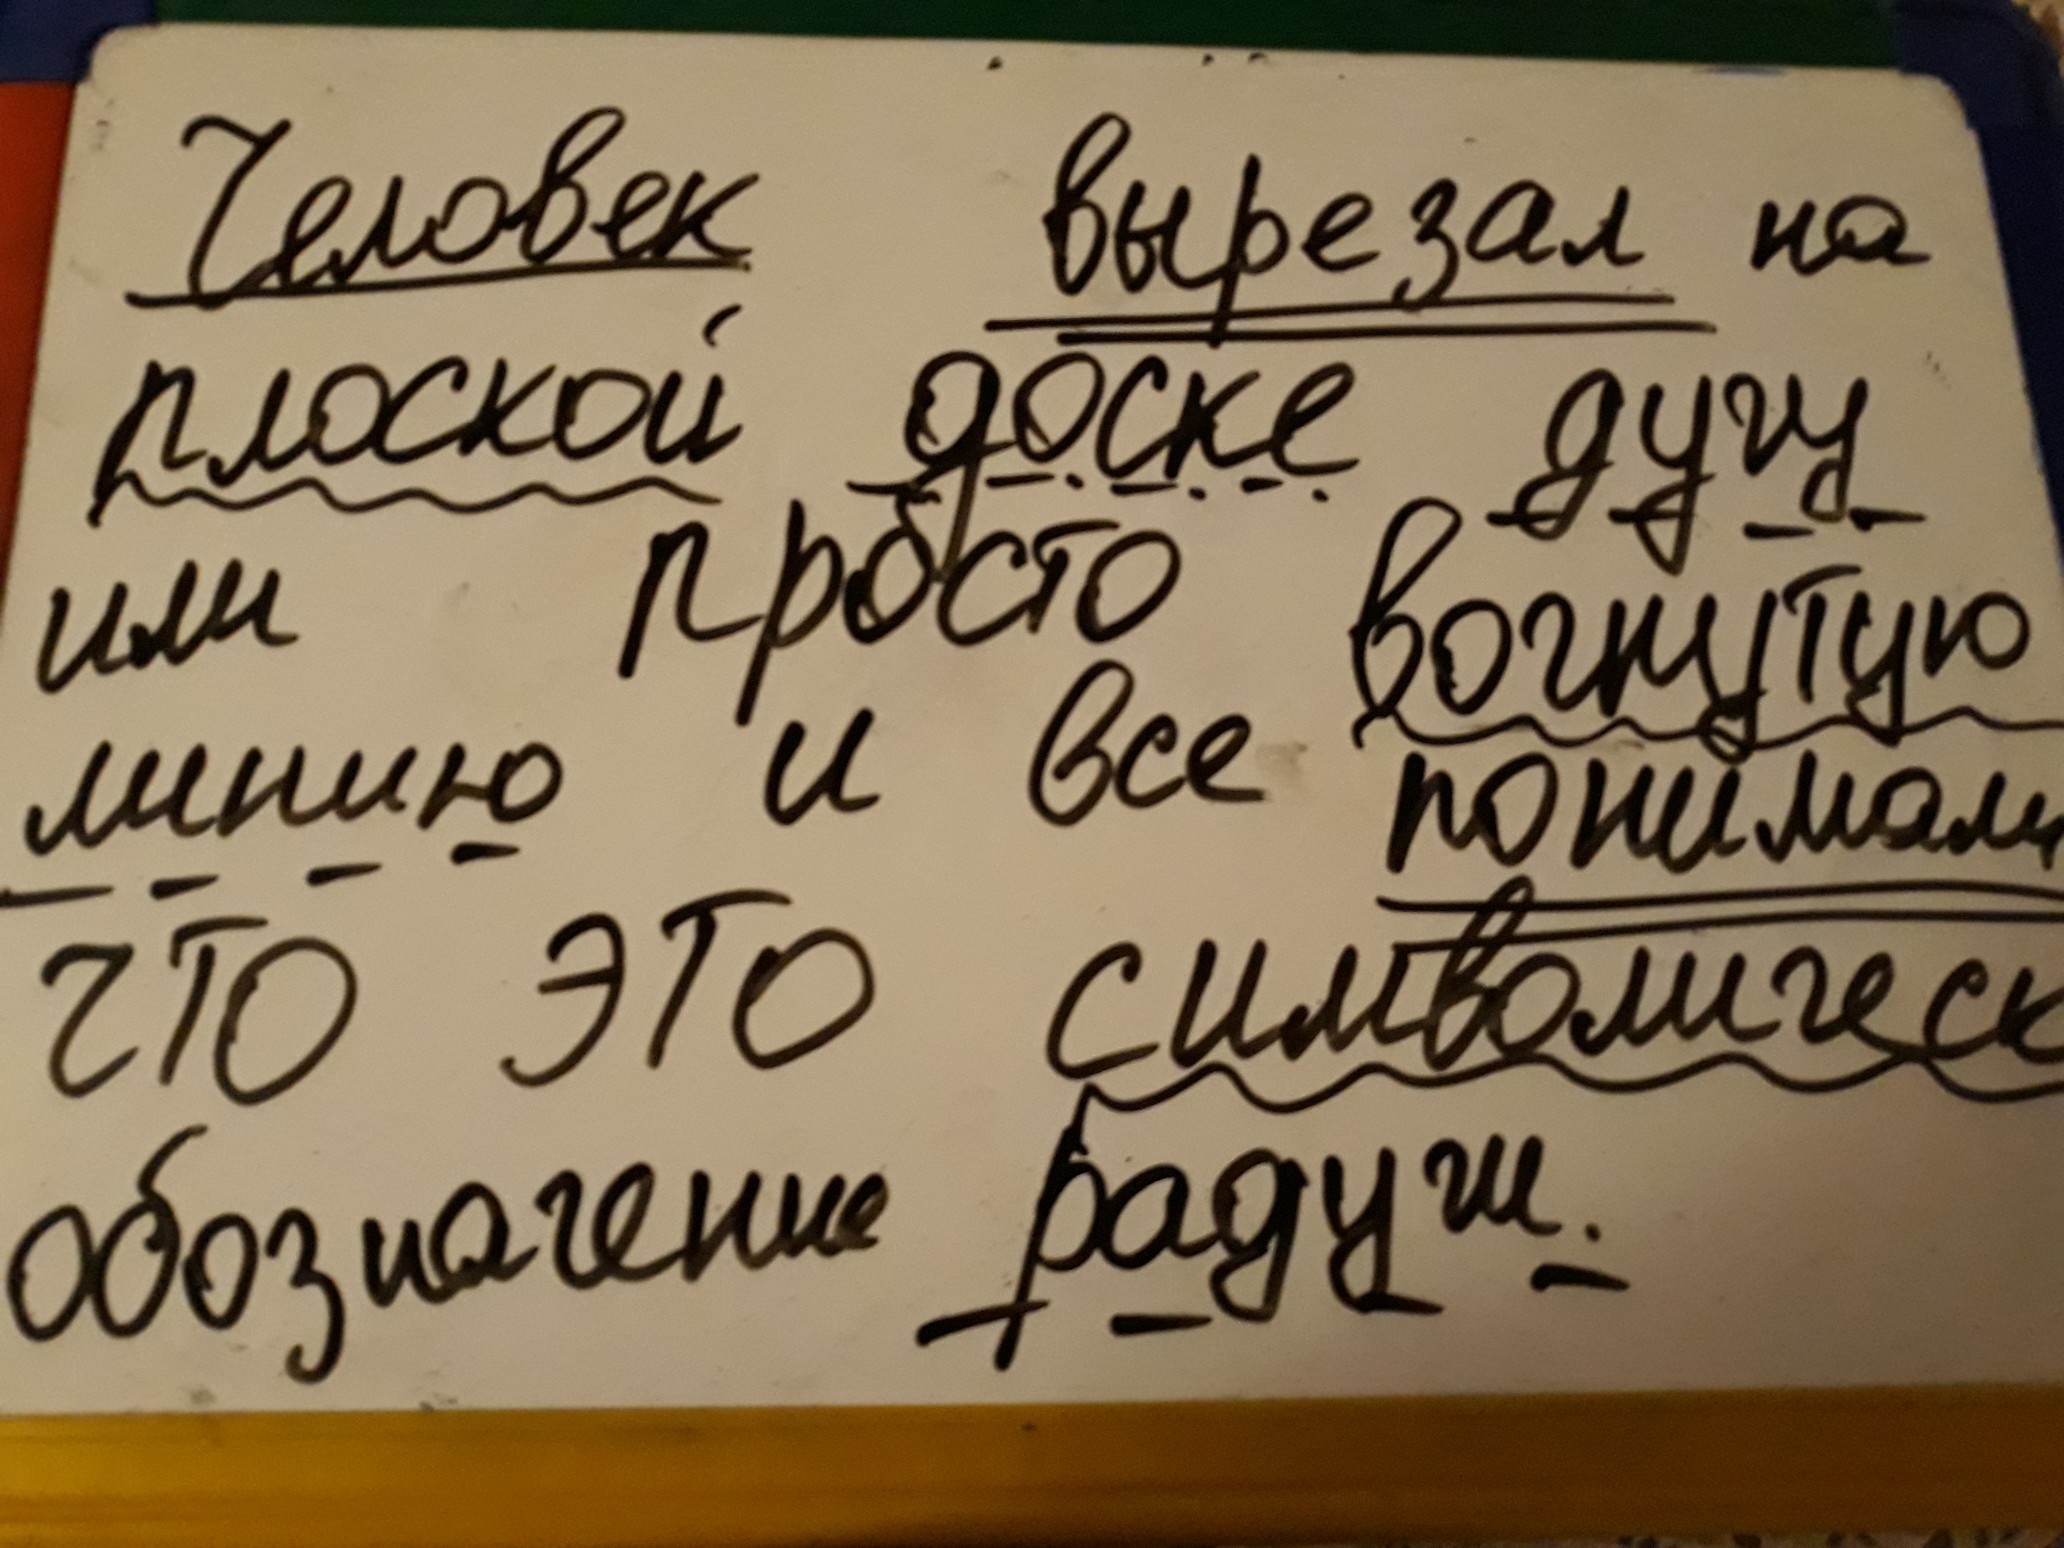 Человек вырезал на
плоской доске дугу
или просто вогнутую
линию и все понимали
что это символическ
обозначение радуги.